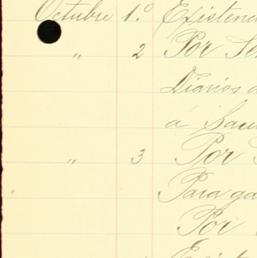 Octubre 1.º Existenc
" 2 Por Se
Diarios d
á
" 3 Por
Para ga
Por